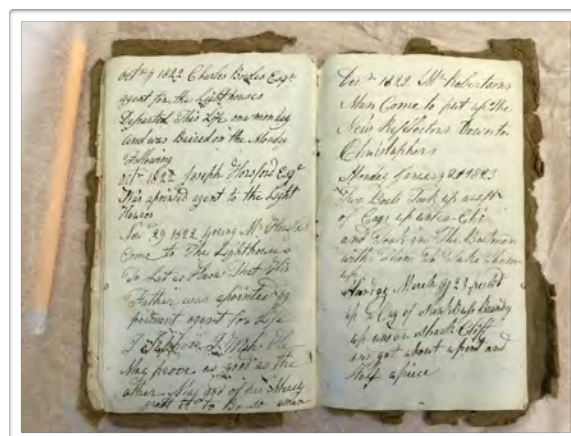 Octbr 7 1822 Charles Bowles Esqr
agent for the Lighthouses
Departed This Life one monday
and was Buired on the Monday
following
Octr 1822 Joseph Horsford Esqr
Was apointed agent to the Light
Houses
Novr 29 1822 young Mr Horsford
Come to The Lighthouses
To Let us Know That His
Father was apointed
permant agent for Life
I Suppose I Wish He
May proove as good as the
other May god of his Mercy
grant it to Be so
Decr 1822 Mr Robertsons
Man Come to put up The
New Reflectors Down to
Christophers
Monday January 20 1823
Two Boats Took up
of Cags up under
and Took in The Boatmen
with Them To Take them
up
Sunday March 9 23 picked
up a Cag of Brandy
up under Cliff
and got about a pint and
Half a piece